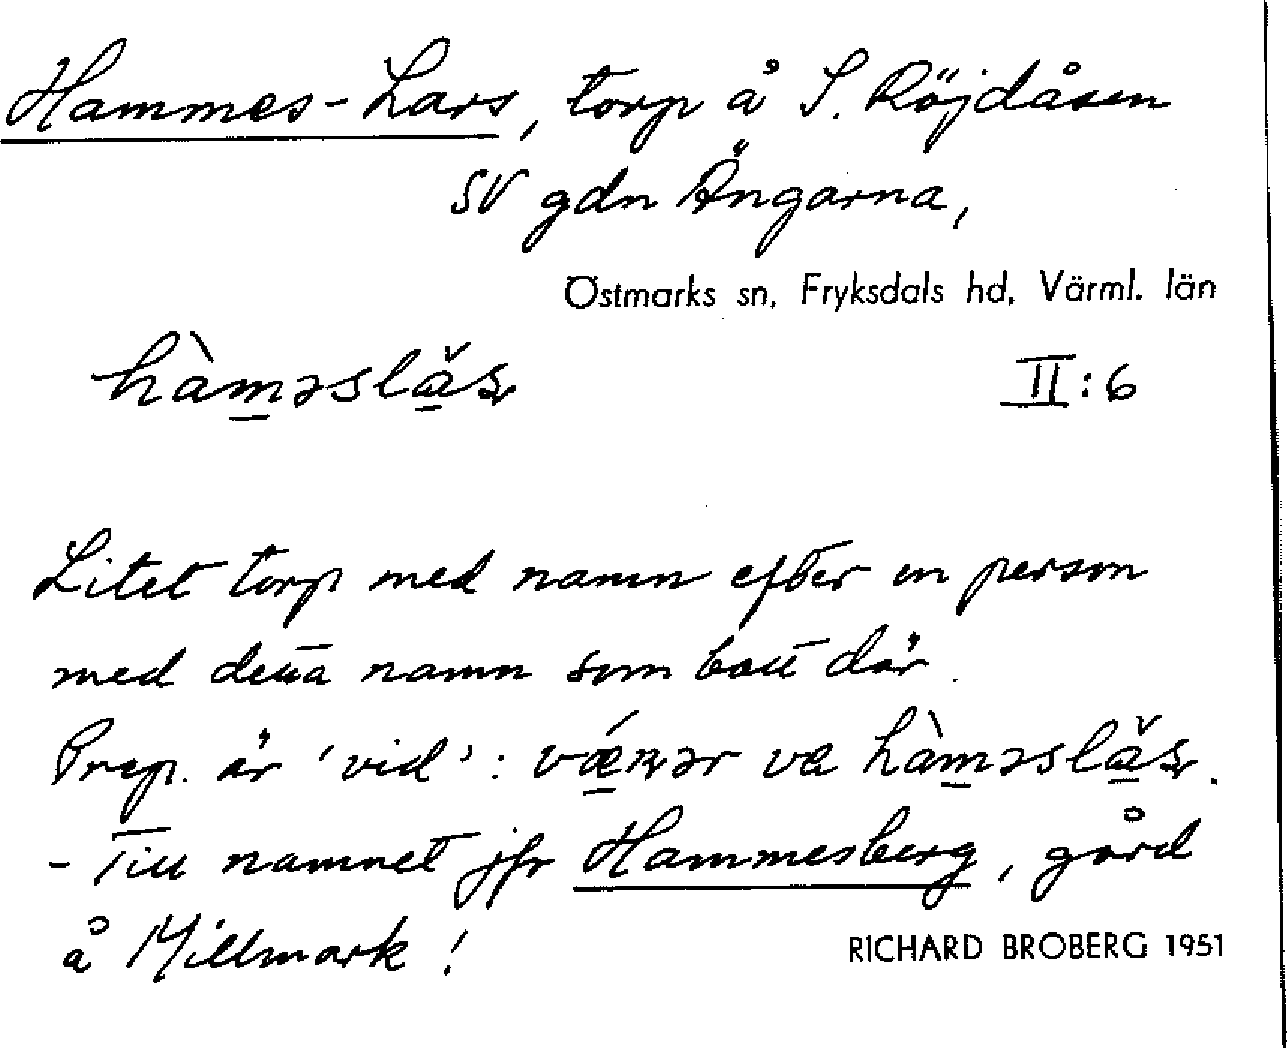 Hammes-Lars, torp å S. Röjdåsen
SV gdn Ängarna,
Östmarks sn, Fryksdals hd, Värml. län
hàm̲əslǎ̲s̨ II:6
Litet torp med namn efter en person
med detta namn som bott där.
Prep. är 'vid': vǽ̲ɴər va hàm̲əslǎ̲s̨.
- Till namnet jfr Hammesberg, gård
å Millmark!
RICHARD BROBERG 1951